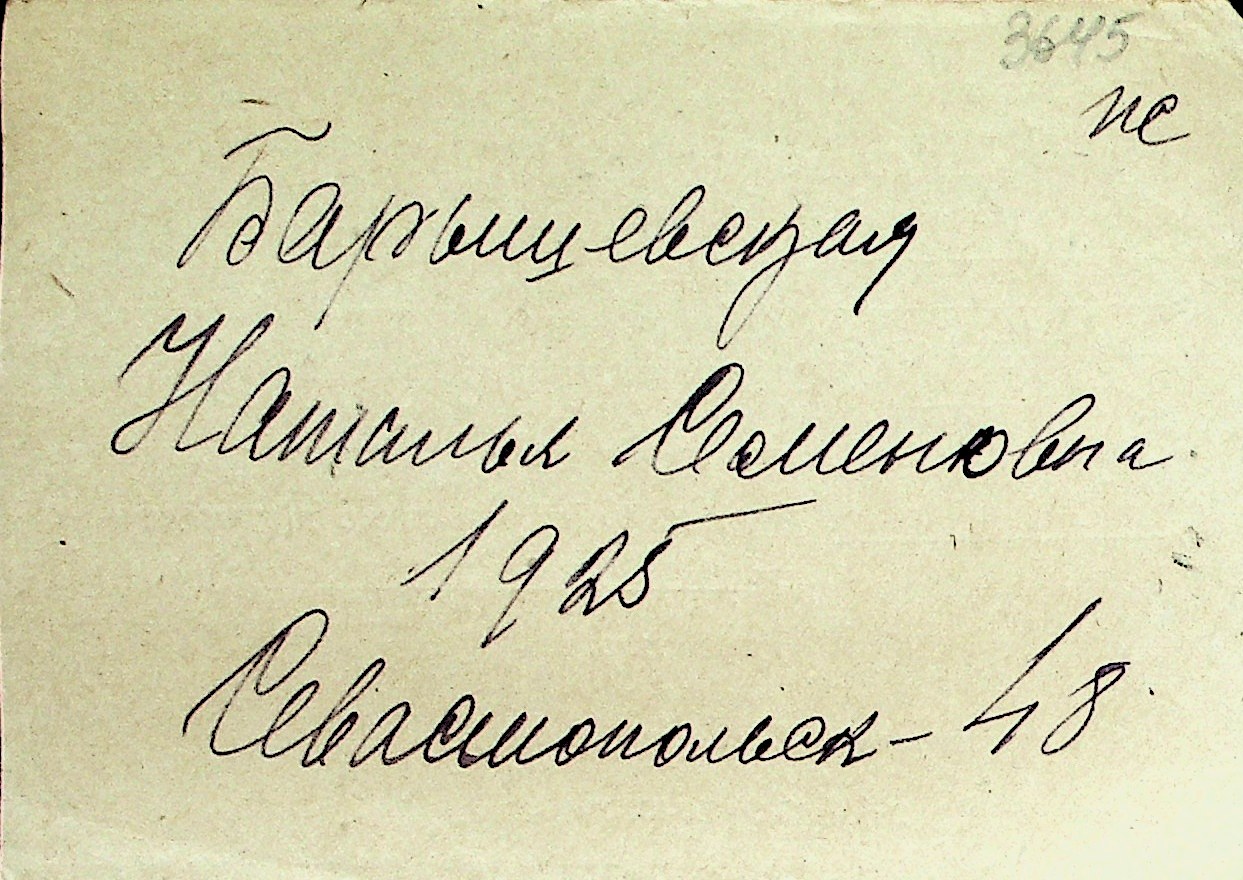 3645
пс
Барышевская
Наталья Семеновна
1925
Севастопольск - 48